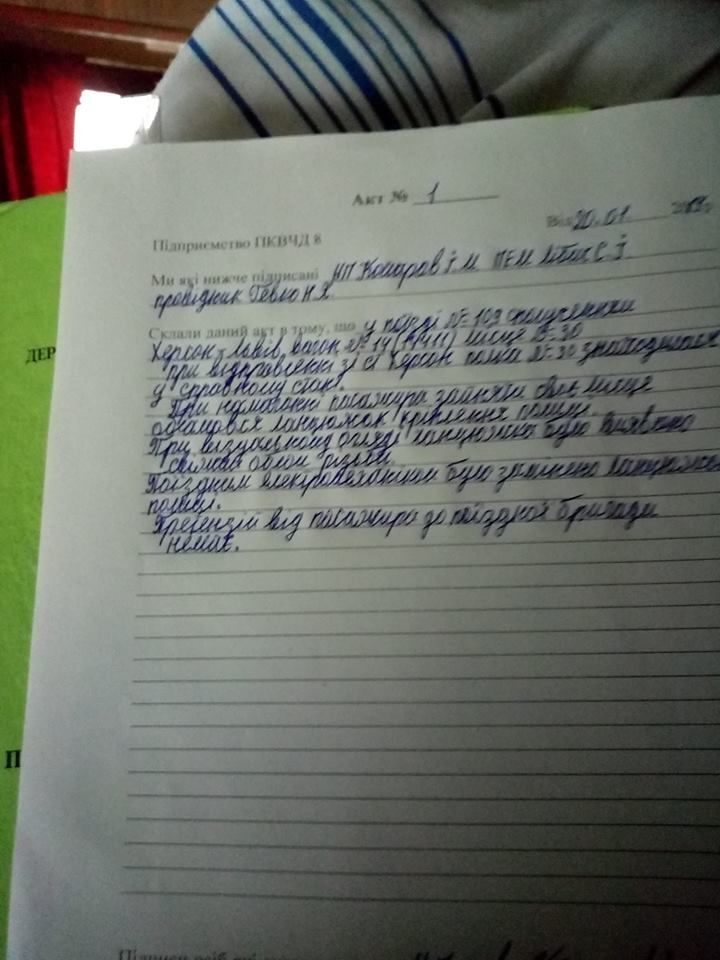 Акт № 1
Від 20.01
Підприємство ПКВЧД 8
Ми які нижче підписані НП Комаров І.М. ПЕМ
провідник Гевло Н.Я.
Склали даний акт в тому, що у поїзді № 109 сполученням
Херсон-Львів, вагон № 14 місце № 30
при відправленні зі ст Херсон полка № 30 знаходилася
у справному стані.
При намаганні пасажира зайняти своє місце
обламався ланцюжок кріплення полиці.
При візуальному огляді ланцюжка було виявлено
Поїздним електромеханіком було замінено ланцюжок
полиці.
Претензій від пасажира до поїздної бригади
немає.
ДЕР
П
Підписи осіб